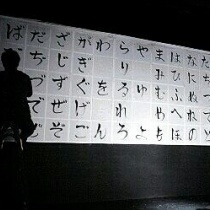 たちつてと
なにぬねの
はひふへほ
まみむめも
やゆよ
らりるれろ
わをん
がぎぐげご
ざじずぜぞ
だぢづでど
ば